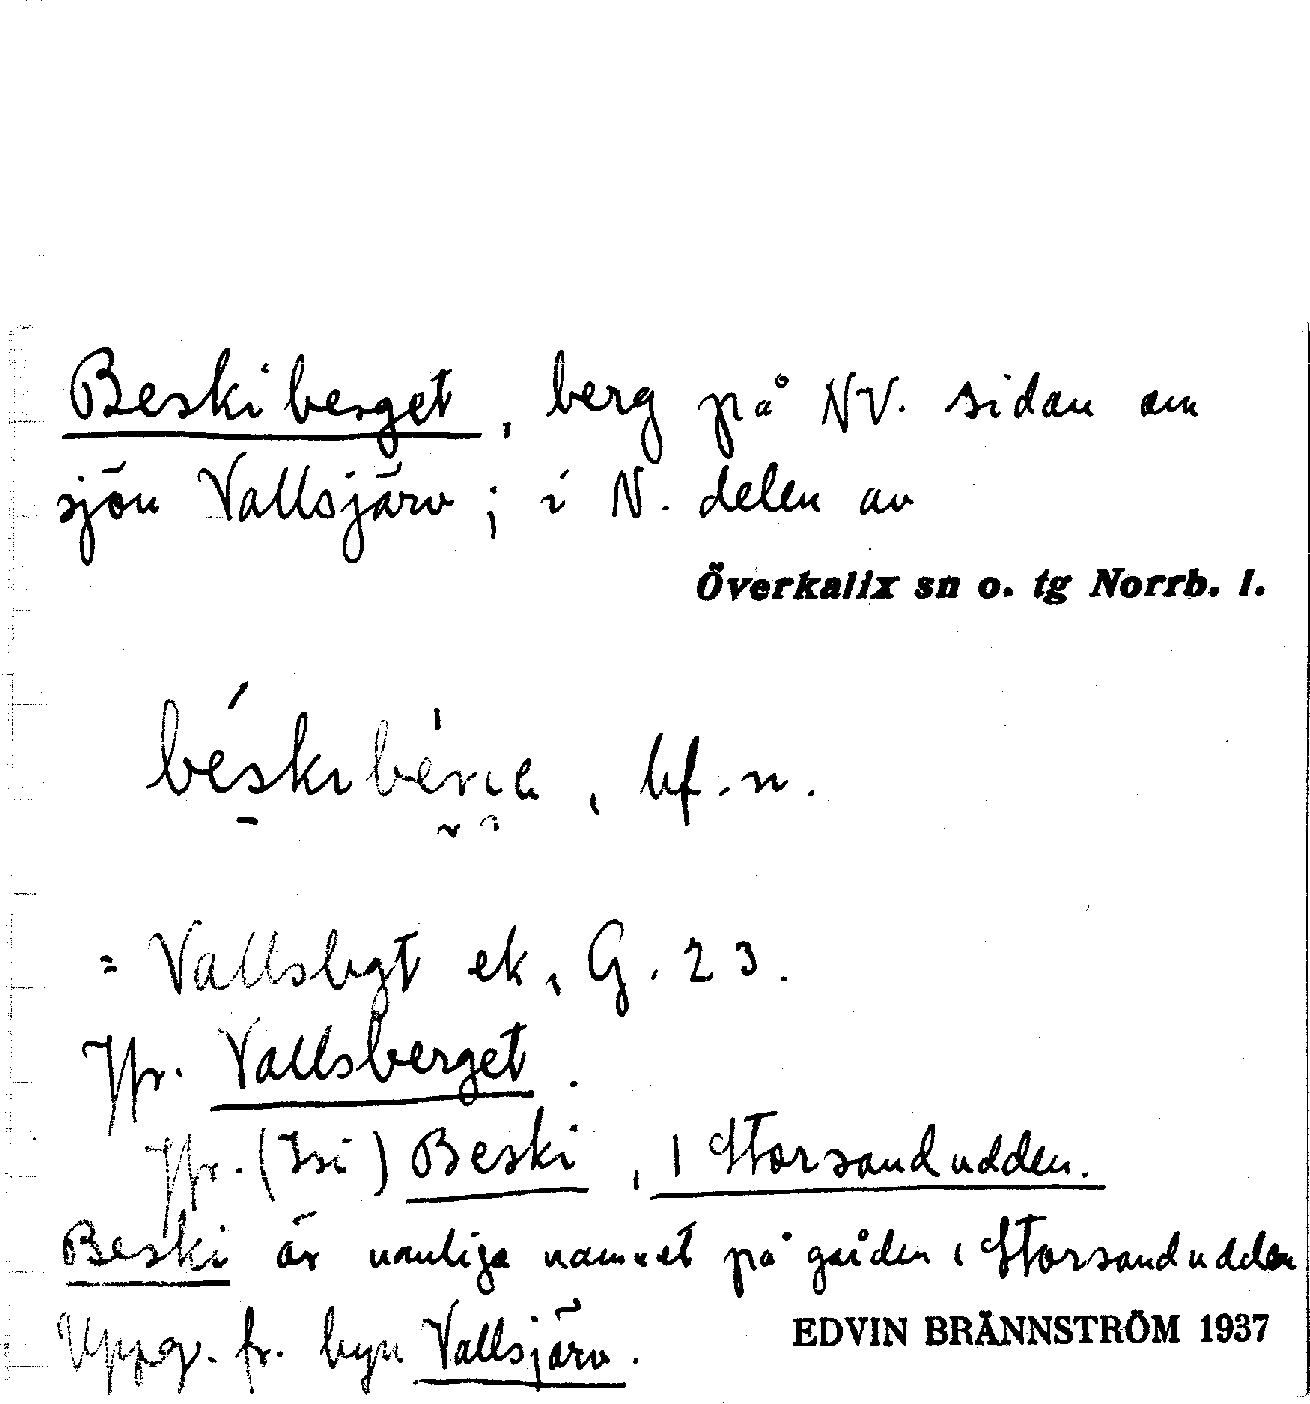 Beskiberget, berg på NV. sidan om
sjön Vallsjärv; i N. delen av
Överkalix sn o. tg Norrb. l.
bf. n.
= Vallsbgt ek, G. 23.
Jfr. Vallsberget.
Jfr. (Isi) Beski, 1 Storsandudden.
Beski är vanliga namnet på gården i Storsandudden
Uppg. fr. byn Vallsjärv.
EDVIN BRÄNNSTRÖM 1937